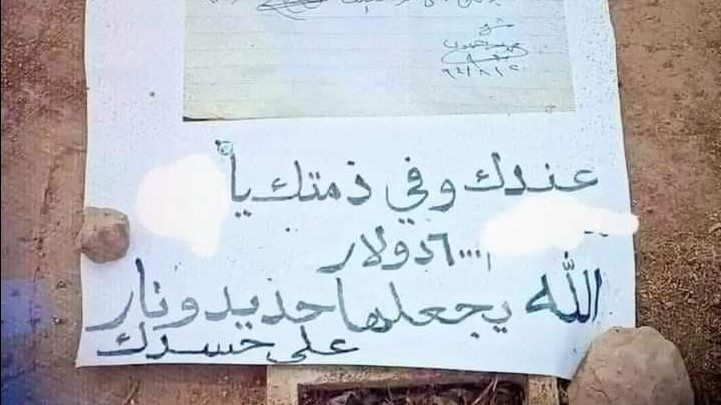 عندك وفي ذمتك يا
٦٠٠٠ دولار
الله يجعلها حذيد ونار
على حسدك